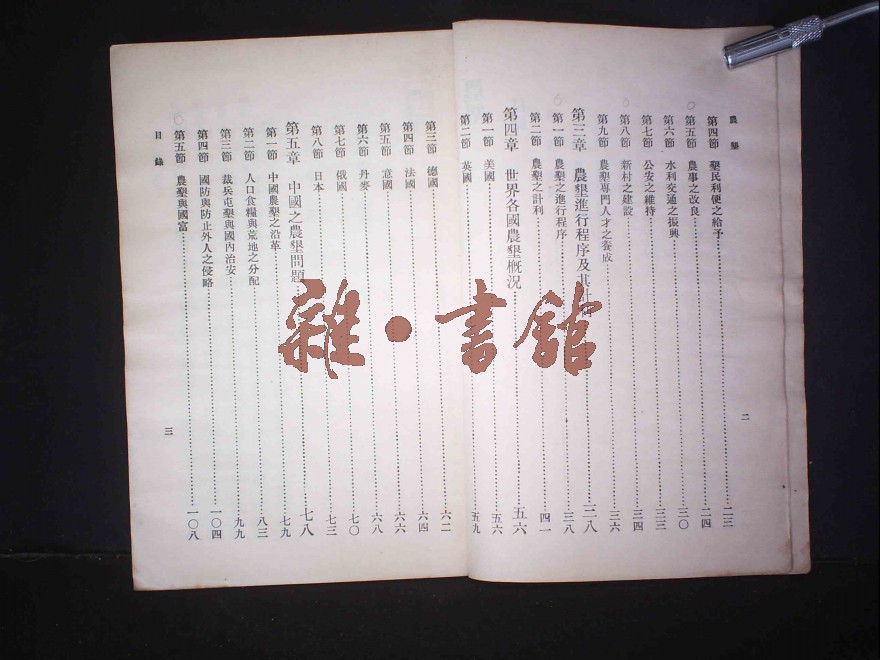 農墾
第四節 墾民利便之給予 二三
第五節 農事之改良 二四
第六節 水利交通之振興 三〇
第七節 公安之維持 三三
第八節 新村之建設 三四
第九節 農墾專門人才之養成 三六
第三章 農墾進行程序及其 三八
第一節 農墾之進行程序 三八
第二節 農墾之計利 四一
第四章 世界各國農墾概況 五六
第一節 美國 五六
第二節 英國 五九
二
第三節 德國 六二
第四節 法國 六四
第五節 意國 六六
第六節 丹麥 六八
第七節 俄國 七〇
第八節 日本 七三
第五章 中國之農墾問題 七八
第一節 中國農墾之沿革 七九
第二節 人口食糧與荒地之分配 八三
第三節 裁兵屯墾與國內治安 九九
第四節 國防與防止外人之侵略 一〇四
第五節 農墾與國富 一〇八
目錄
三
雜·書館